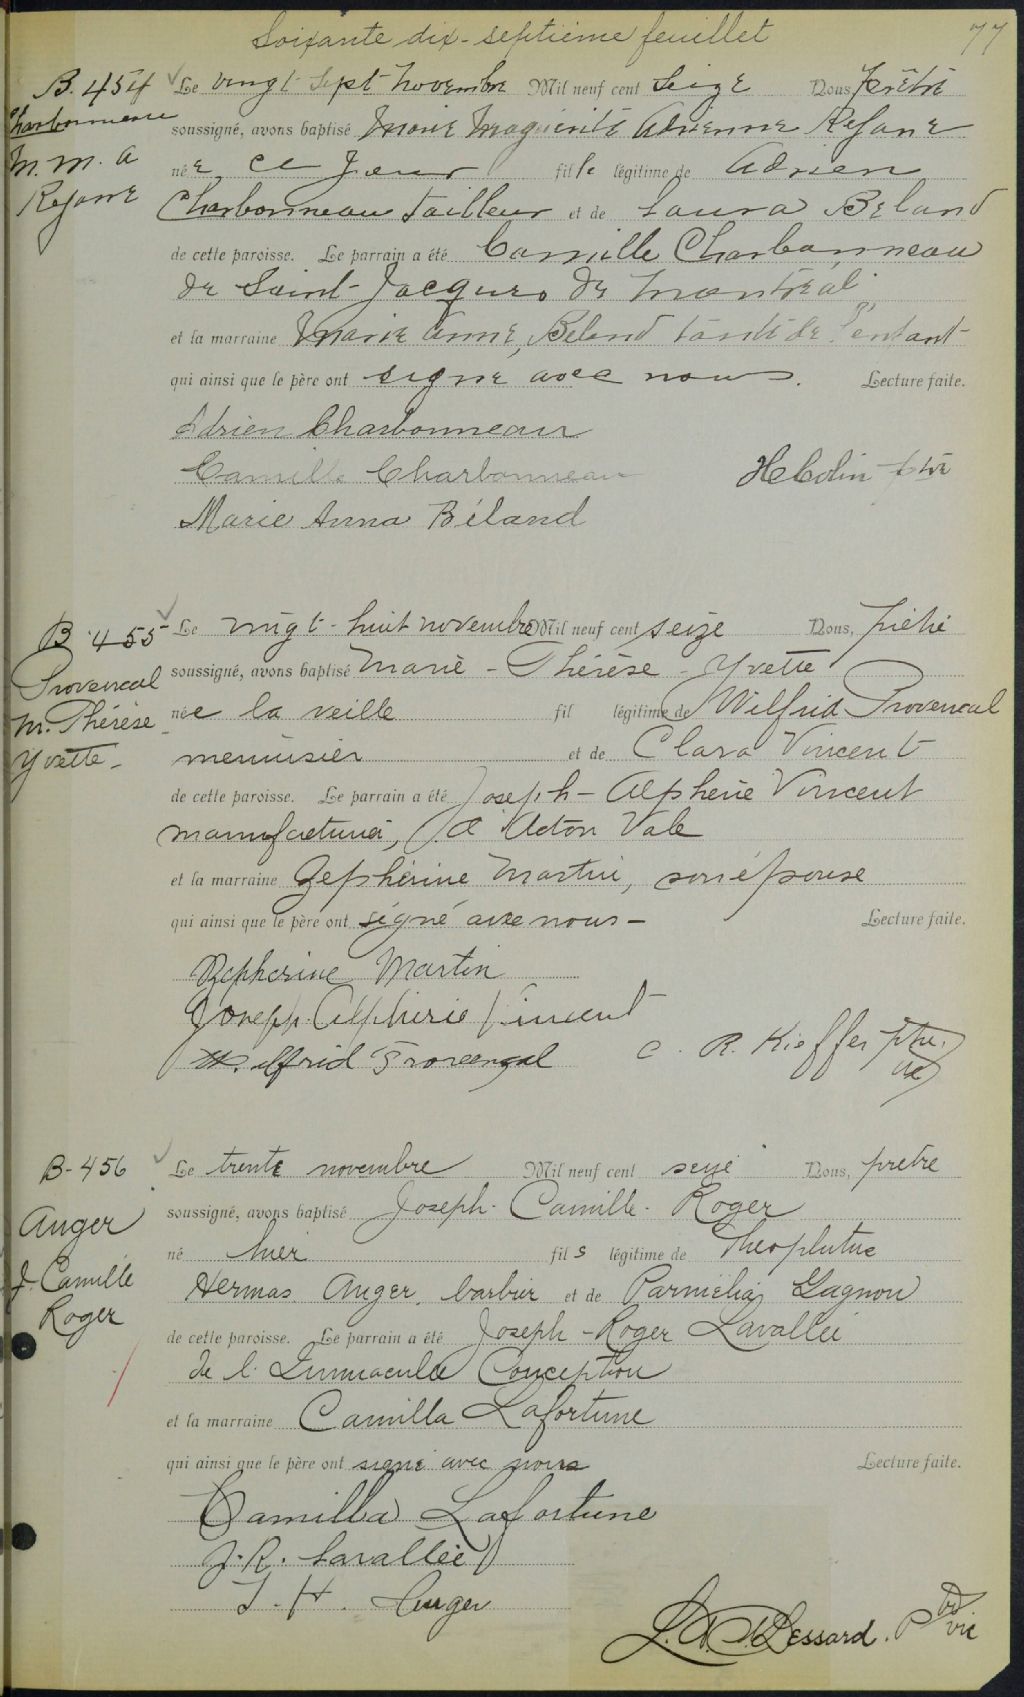 Soixante dix-septième feuillet
77
B. 454
Charbonneau
M. M. A
Rejane
Le vingt-sept novembre Mil neuf cent seize Nous, prêtre
soussigné, avons baptisé Marie Marguerite Adrienne Rejane
née, ce jour fille légitime de Adrien
Charbonneau tailleur et de Laura Beland
de cette paroisse. Le parrain a été Camille Charbonneau
de Saint-Jacques de Montréal
et la marraine Marie Anne, Beland tante de l'enfant-
qui ainsi que le père ont signé avec nous. Lecture faite.
Adrien Charbonneau
Camille Charbonneau
Marie Anna Béland
ptre
B 455
Provencal
M. Thérèse
Yvette-
Le vingt-huit novembre Mil neuf cent seize Nous, prêtre
soussigné, avons baptisé Marie-Thérèse-Yvette
née la veille fil légitime de Wilfrid Provencal
menuisier et de Clara Vincent
de cette paroisse. Le parrain a été Joseph-Alpherie Vincent
manufacturier, d'Acton Vale
et la marraine Zephirine Martin, son épouse
qui ainsi que le père ont signé avec nous- Lecture faite.
Zepherine Martin
Joseph Alpherie Vincent
Wilfrid Provençal
C. R. Kieffer ptre.
vic
B-456
Auger
J. Camille
Roger
Le trente novembre Mil neuf cent seize Nous, prêtre
soussigné, avons baptisé Joseph-Camille-Roger
né hier fils légitime de
Hermas Auger, barbier et de Parmélia Gagnon
de cette paroisse. Le parrain a été Joseph-Roger Lavallée
de l'Immaculée Conception
et la marraine Camilla Lafortune
qui ainsi que le père ont signé avec nous Lecture faite.
Camilla Lafortune
J. R. Lavallée
T. H. Auger
Lessard. Ptre
vic